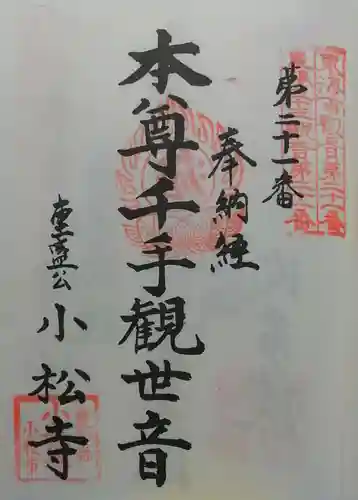 第二十一番
奉納経
本尊千手観世音
重盛公
小松寺